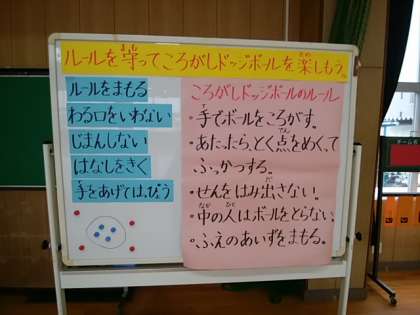 ルールを守ってころがしドッジボールを楽しもう。
ルールをまもる
わる口をいわない
じまんしない
はなしをきく
手をあげてはっぴょう
ころがしドッジボールのルール
・手でボールをころがす。
・あたったら、とく点をめくって
ふっかつする。
・せんをはみ出さない。
・中の人はボールをとらない。
・ふえのあいずをまもる。